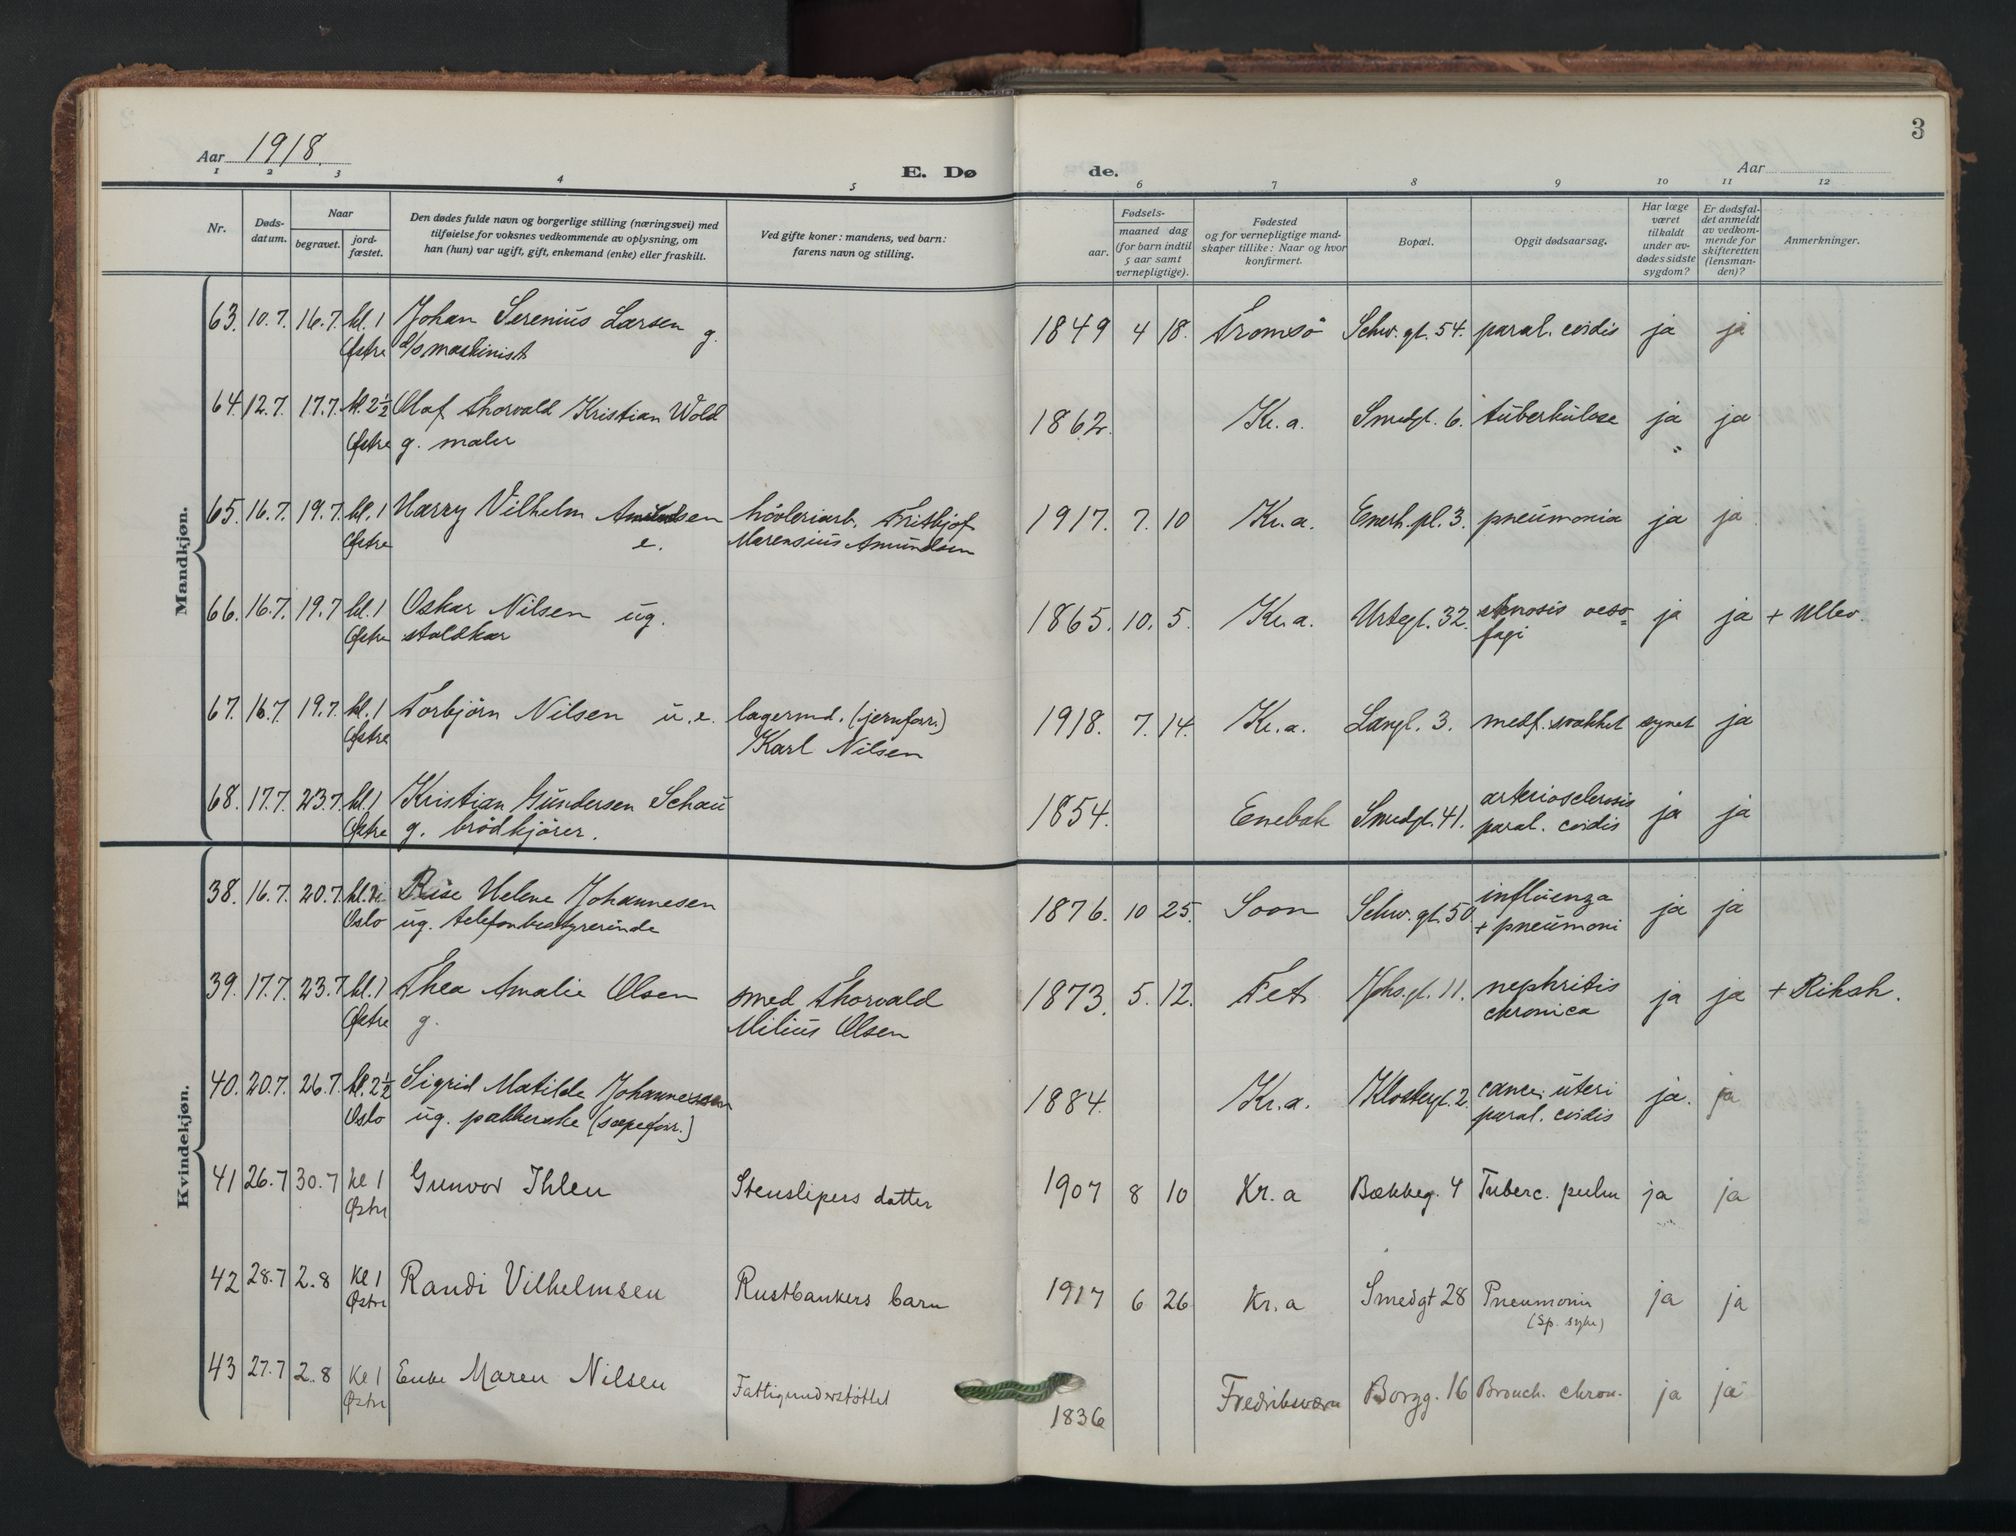 3
Aar 1918.
E. Dø
de.
Aar
1 2 3 4 5 6 7 8 9 10 11 12
Nr.
Døds-
datum.
Naar
begravet.
jord-
fæstet.
Den dødes fulde navn og borgerlige stilling (næringsvei) med
tilføielse for voksnes vedkommende av oplysning, om
han (hun) var ugift, gift, enkemand (enke) eller fraskilt.
Ved gifte koner: mandens, ved barn:
farens navn og stilling.
aar.
Fødsels-
maaned dag
(for barn indtil
5 aar samt
vernepligtige).
Fødested
og for vernepligtige mand-
skaper tillike: Naar og hvor
konfirmert.
Bopæl.
Opgit dødsaarsag.
Har læge
været
tilkaldt
under av-
dødes sidste
sygdom?
Er dødsfal-
det anmeldt
av vedkom-
mende for
skifteretten
(lensman-
den)?
Anmerkninger.
Mandkjøn.
63. 10.7. 16.7. kl. 1 Johan Serenius Larsen g. 1849 4 18. Tromsø Schw. gt. 54. paral. cordis ja ja
Østre d/s maskinist
64. 12.7. 17.7. kl. 2½ Olaf Thorvald Kristian Wold 1862. Kr. a. Smedgt. 6. tuberkulose ja ja
Østre g. maler
65. 16.7. 19.7. kl. 1 Harry Vilhelm Amundsen høvleriarb. Fritbjof 1917. 7. 10 Kr. a. Enerh. pl. 3. pneumonia ja ja
Østre e. Marensius Amundsen
66. 16.7. 19.7 kl. 1 Oskar Nilsen ug. 1865. 10. 5. Kr. a. Urtegt. 32. stenosis oeso=
Østre staldkar fagi ja ja + Ullev.
67. 16.7. 19.7. kl. 1 Torbjørn Nilsen u. e. lagermd. (jernforr.) 1918. 7. 14. Kr. a. Langl. 3. medf. svakhet synet ja
Østre Karl Nilsen
68. 17.7. 23.7. kl. 1 Kristian Gundersen Schau 1854. Enebak Smedgt. 41. arteriosclerosis ja ja
Østre g. brødkjører. paral. cordis
Kvindekjøn.
38. 16.7. 20.7. Helene Johannesen 1876. 10 25. Soon Schw. gt. 50. influenza ja ja
Oslo ug. telefonbestyrerinde + pneumoni
39. 17.7. 23.7 kl. 1 Thea Amalie Olsen smed Thorvald 1873. 5. 12. Fet Johs. gt. 11. nephritis ja ja + Riksh.
Østre g. Milius Olsen chronica
40. 20.7. 26.7. kl. 2½ Sigrid Matilde Johannessen 1884. Kr. a. Klostergt. 2. canc. uteri ja. ja
Oslo ug. pakkerske (sæpeforr.) paral. cordis
41 26.7 30.7 kl 1 Gunvor Ihlen Stenslipers datter 1907 8 10 Kr. a Bækkeg. 4 Tuberc. pulm ja ja
Østre
42 28.7 2.8 Kl 1 Randi Vilhelmsen Rustbankers barn 1917 6 26 Kr. a Smedgt 28 Pneumoni ja ja
Østre (Sp. syke)
43 27.7 2.8 Kl 1 Enke Maren Nilsen Fattigunderstøttet 1836 Fredriksværn Borgg. 16 Bronch. chron. ja ja
Østre